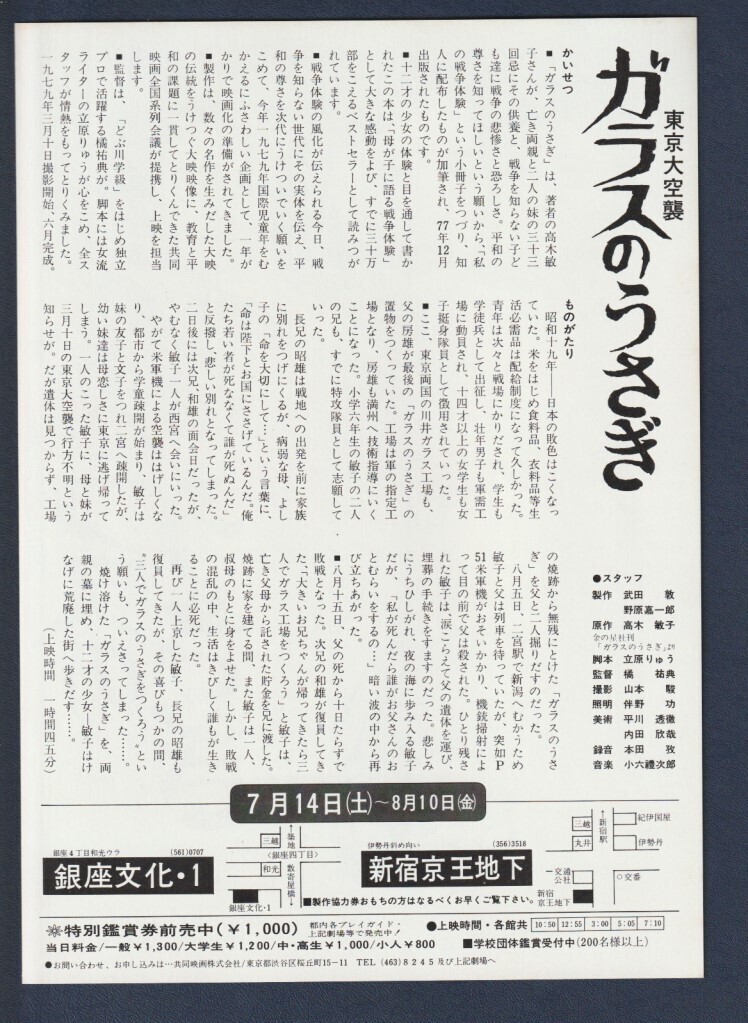 東京大空襲
ガラスのうさぎ
かいせつ
■「ガラスのうさぎ」は、著者の高木敏
子さんが、亡き両親と二人の妹の三十三
回忌にその供養と、戦争を知らない子ど
も達に戦争の悲惨さと恐ろしさ。平和の
尊さを知ってほしいという願いから、「私
の戦争体験」という小冊子をつづり、知
人に配布したものが加筆され、77年12月
出版されたものです。
■十二才の少女の体験と目を通して書か
れたこの本は「母が子に語る戦争体験」
として大きな感動をよび、すでに三十万
部をこえるベストセラーとして読みつが
れています。
■戦争体験の風化が伝えられる今日、戦
争を知らない世代にその実体を伝え、平
和の尊さを次代にうけついでいく願いを
こめて、今年一九七九年国際児童年をむ
かえるにふさわしい企画として、一年が
かりで映画化の準備がされてきました。
■製作は、数々の名作を生みだした大映
の伝統をうけつぐ大映映像に、教育と平
和の課題に一貫してとりくんできた共同
映画全国系列会議が提携し、上映を担当
します。
■監督は、「どぶ川学級」をはじめ独立
プロで活躍する橘祐典が。脚本には女流
ライターの立原りゅうが心をこめ、全ス
タッフが情熱をもってとりくみました。
一九七九年三月十日撮影開始、六月完成。
ものがたり
昭和十九年――日本の敗色はこくなっ
ていた。米をはじめ食料品、衣料品等生
活必需品は配給制度になって久しかった。
青年は次々と戦場にかりだされ、学生も
学徒兵として出征し、壮年男子も軍需工
場に動員され、十四才以上の女学生も女
子挺身隊員として徴用されていった。
■ここ、東京両国の川井ガラス工場も、
父の房雄が最後の「ガラスのうさぎ」の
置物をつくっていた。工場は軍の指定工
場となり、房雄も満州へ技術指導にいく
ことになった。小学六年生の敏子の二人
の兄も、すでに特攻隊員として志願して
いった。
長兄の昭雄は戦地への出発を前に家族
に別れをつげにくるが、病弱な母、よし
子の「命を大切にして…」という言葉に、
「命は陛下とお国にささげているんだ。俺
たち若い者が死ななくて誰が死ぬんだ」
と反撥し、悲しい別れとなってしまった。
二日後には次兄、和雄の面会日だったが、
やむなく敏子一人が西宮へ会いにいった。
やがて米軍機による空襲ははげしくな
り、都市から学童疎開が始まり、敏子は
妹の友子と文子をつれ二宮へ疎開したが、
幼い妹達は母恋しさに東京に逃げ帰って
しまう。一人のこった敏子に、母と妹が
三月十日の東京大空襲で行方不明という
知らせが。だが遺体は見つからず、工場
の焼跡から無残にとけた「ガラスのうさ
ぎ」を父と二人掘りだすのだった。
八月五日、二宮駅で新潟へむかうため
敏子と父は列車を待っていたが、突如P
51米軍機がおそいかかり、機銃掃射によ
って目の前で父は殺された。ひとり残さ
れた敏子は、涙こらえて父の遺体を運び、
埋葬の手続きをすますのだった。悲しみ
にうちひしがれ、夜の海に歩み入る敏子
だが、「私が死んだら誰がお父さんのお
とむらいをするの…」暗い波の中から再
び立ちあがった。
■八月十五日、父の死から十日たらずで
敗戦となった。次兄の和雄が復員してき
た「大きいお兄ちゃんが帰ってきたら三
人でガラス工場をつくろう」と敏子は、
亡き父母から託された貯金を兄に渡した。
焼跡に家を建てる間、また敏子は一人、
叔母のもとに身をよせた。しかし、敗戦
の混乱の中、生活はきびしく誰もが生き
ることに必死だった。
再び一人上京した敏子、長兄の昭雄も
復員してきたが、その喜びもつかの間、
“三人でガラスのうさぎをつくろう”とい
う願いも、ついえさってしまった……。
焼け溶けた「ガラスのうさぎ」を、両
親の墓に埋め、十二才の少女―敏子はけ
なげに荒廃した街へ歩きだす……。
(上映時間 一時間四五分)
●スタッフ
製作 武田 敦
野原嘉一郎
原作 高木 敏子
金の星社刊
「ガラスのうさぎ」より
脚本 立原りゅう
監督 橘 祐典
撮影 山本 駿
照明 伴野 功
美術 平川 透徹
内田 欣哉
録音 本田 孜
音楽 小六禮次郎
7月14日(土)~8月10日(金)
銀座4丁目和光ウラ (561)0707
銀座文化・1
三越
和光
↑築地
〈銀座四丁目〉
数寄屋橋↓
銀座文化・1
伊勢丹斜め向い (356)3518
新宿京王地下
三越
丸井
↑新宿駅
紀伊国屋
伊勢丹
交通公社
○交番
新宿京王地下
■製作協力券おもちの方はなるべくお早くご覧下さい。
※特別鑑賞券前売中(¥1,000) 都内各プレイガイド・上記劇場等で発売中!
当日料金/一般¥1,300/大学生¥1,200/中・高生¥1,000/小人¥800
●上映時間・各館共 10:50 12:55 3:00 5:05 7:10
■学校団体鑑賞受付中(200名様以上)
●お問い合わせ、お申し込みは…共同映画株式会社/東京都渋谷区桜丘町15-11 TEL (463)8245及び上記劇場へ